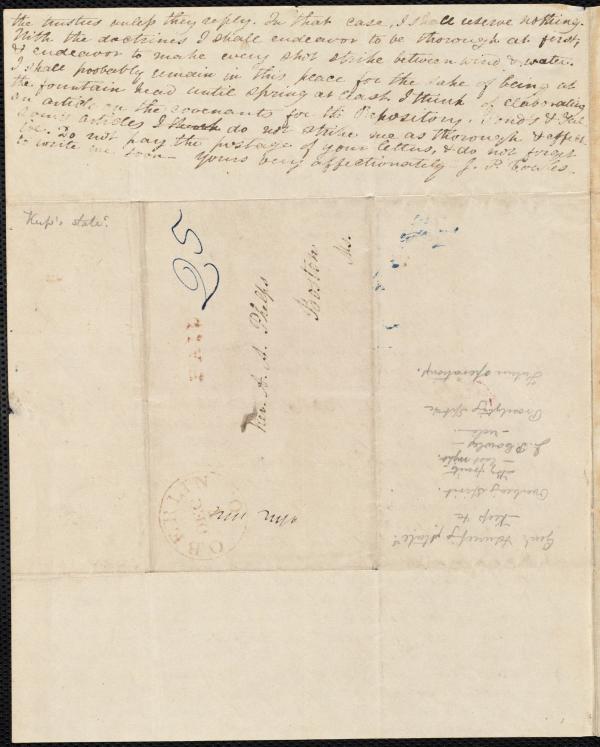 the trustees unless they reply. In that case, I shall reserve nothing.
With the doctrines I shall endeavor to be thorough at first,
& endeavor to make every shot strike between wind & water.
I shall probably remain in this place for the sake of being at
the fountain head until spring at least. I think of elaborating
an article on the covenants for the Repository. Pond's &
articles I think do not strike me as thorough & effect
ive. Do not pay the postage of your letters, & do not forget
to write me soon— Yours very affectionately J. P. Cowles.
Keep's statet.
25
PAID
Rev. A. A. Phelps
Boston
Ms.
OBERLIN
DEC
O
Future operations.
J. P. Cowles
Overbearing Spirit.
Keep to